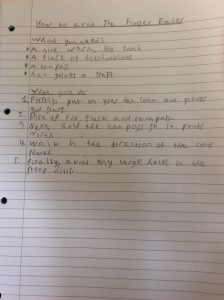 How to avoid The Finger Eater
What you need:
• A nice warm, big coat
• A flask of hotchocolate
• A compas
• hat, gloves a scarf
What you do
1. Firstly, put on your fur coat and gloves
and scarf
2. Pick up the flask and compass.
3. Next, hold the compass so it ponts
North.
4. Walk in the direction of the cold
North.
5. Finally, avoid any large holes in the
steep hills.